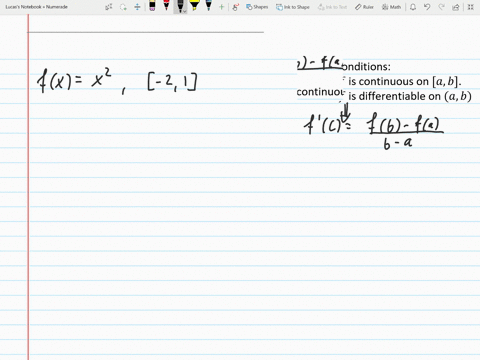 Lucas's Notebook » Numerade
Shapes
Ink to Shape
Ink to Text
Ruler
Math
f(x) = x², [-2, 1]
) - f(a
onditions:
is continuous on [a, b].
continuou
is differentiable on (a, b)
f'(c) = f(b) - f(a) / b - a